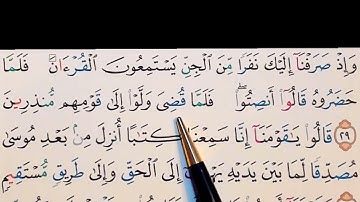 وَإِذْ صَرَفْنَآ إِلَيْكَ نَفَرًا مِّنَ ٱلْجِنِّ يَسْتَمِعُونَ ٱلْقُرْءَانَ فَلَمَّا
حَضَرُوهُ قَالُوٓا۟ أَنصِتُوا۟ ۖ فَلَمَّا قُضِىَ وَلَّوْا۟ إِلَىٰ قَوْمِهِم مُّنذِرِينَ
٢٩ قَالُوا۟ يَـٰقَوْمَنَآ إِنَّا سَمِعْنَا كِتَـٰبًا أُنزِلَ مِنۢ بَعْدِ مُوسَىٰ
مُصَدِّقًا لِّمَا بَيْنَ يَدَيْهِ إِلَى ٱلْحَقِّ وَإِلَىٰ طَرِيقٍ مُّسْتَقِيمٍ